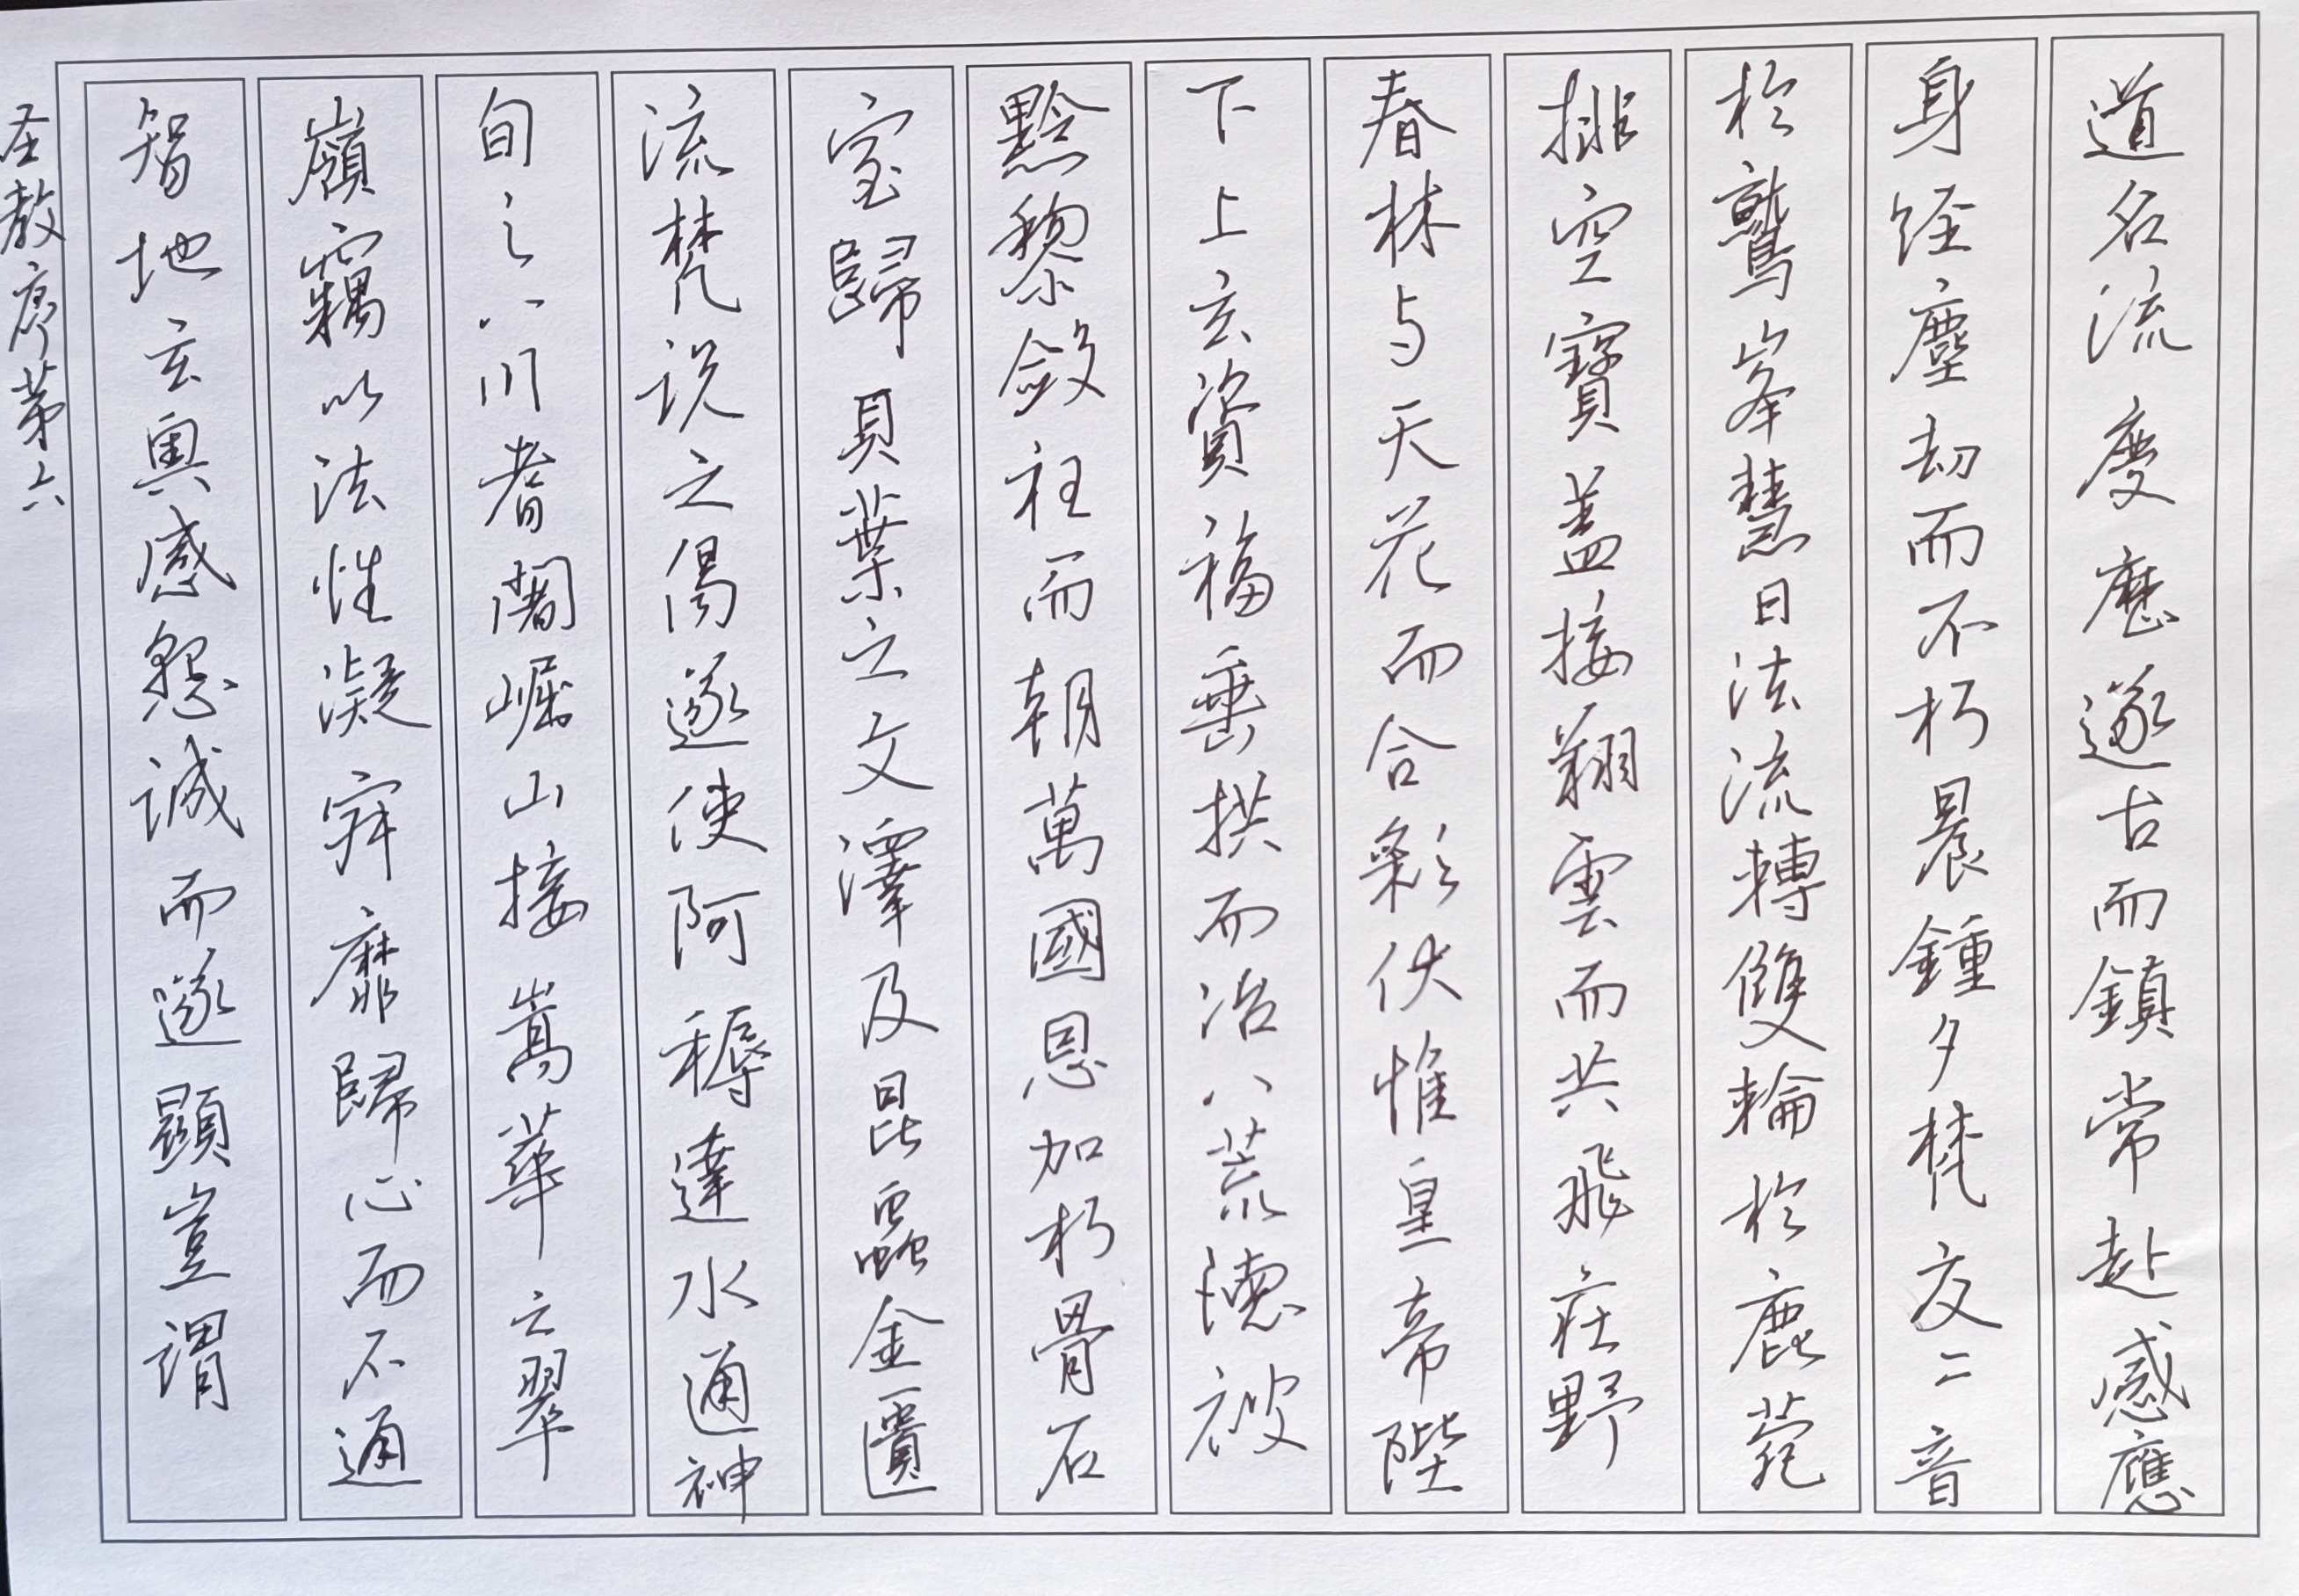 道名流慶歷遂古而鎮常赴感應
身經塵劫而不朽晨鍾夕梵交二音
於鷲峯慧日法流轉雙輪於鹿菀
排空寶蓋接翔雲而共飛莊野
春林与天花而合彩伏惟皇帝陛
下上玄資福垂拱而治八荒德被
黔黎斂衽而朝萬國恩加朽骨石
室歸貝葉之文澤及昆蟲金匱
流梵說之偈遂使阿耨達水通神
甸之八川耆闍崛山接嵩華之翠
嶺竊以法性凝寂靡歸心而不通
智地玄奧感懇誠而遂顯豈謂
圣教序苐六